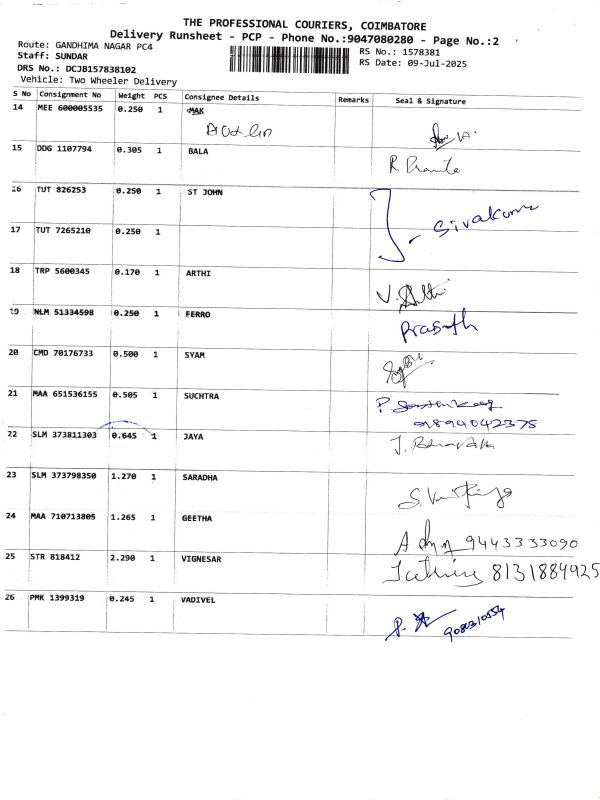 THE PROFESSIONAL COURIERS, COIMBATORE
Delivery Runsheet - PCP - Phone No.:9047080280 - Page No.:2
Route: GANDHIMA NAGAR PC4
Staff: SUNDAR
DRS No.: DCJB157838102
Vehicle: Two Wheeler Delivery
RS No.: 1578381
RS Date: 09-Jul-2025
S No Consignment No Weight PCS Consignee Details Remarks Seal & Signature
14 MEE 600005535 0.250 1 MAK
15 DDG 1107794 0.305 1 BALA
R
16 TUT 826253 0.250 1 ST JOHN
Sivakumar
17 TUT 7265210 0.250 1
18 TRP 5600345 0.170 1 ARTHI
V. Arthi
19 NLM 51334598 0.250 1 FERRO
Prasath
20 CMD 70176733 0.500 1 SYAM
21 MAA 651536155 0.505 1 SUCHTRA
P.
91894042375
22 SLM 373811303 0.645 1 JAYA
J.
23 SLM 373798350 1.270 1 SARADHA
S.
24 MAA 710713805 1.265 1 GEETHA
9443333090
25 STR 818412 2.290 1 VIGNESAR
8131884925
26 PMK 1399319 0.245 1 VADIVEL
P.